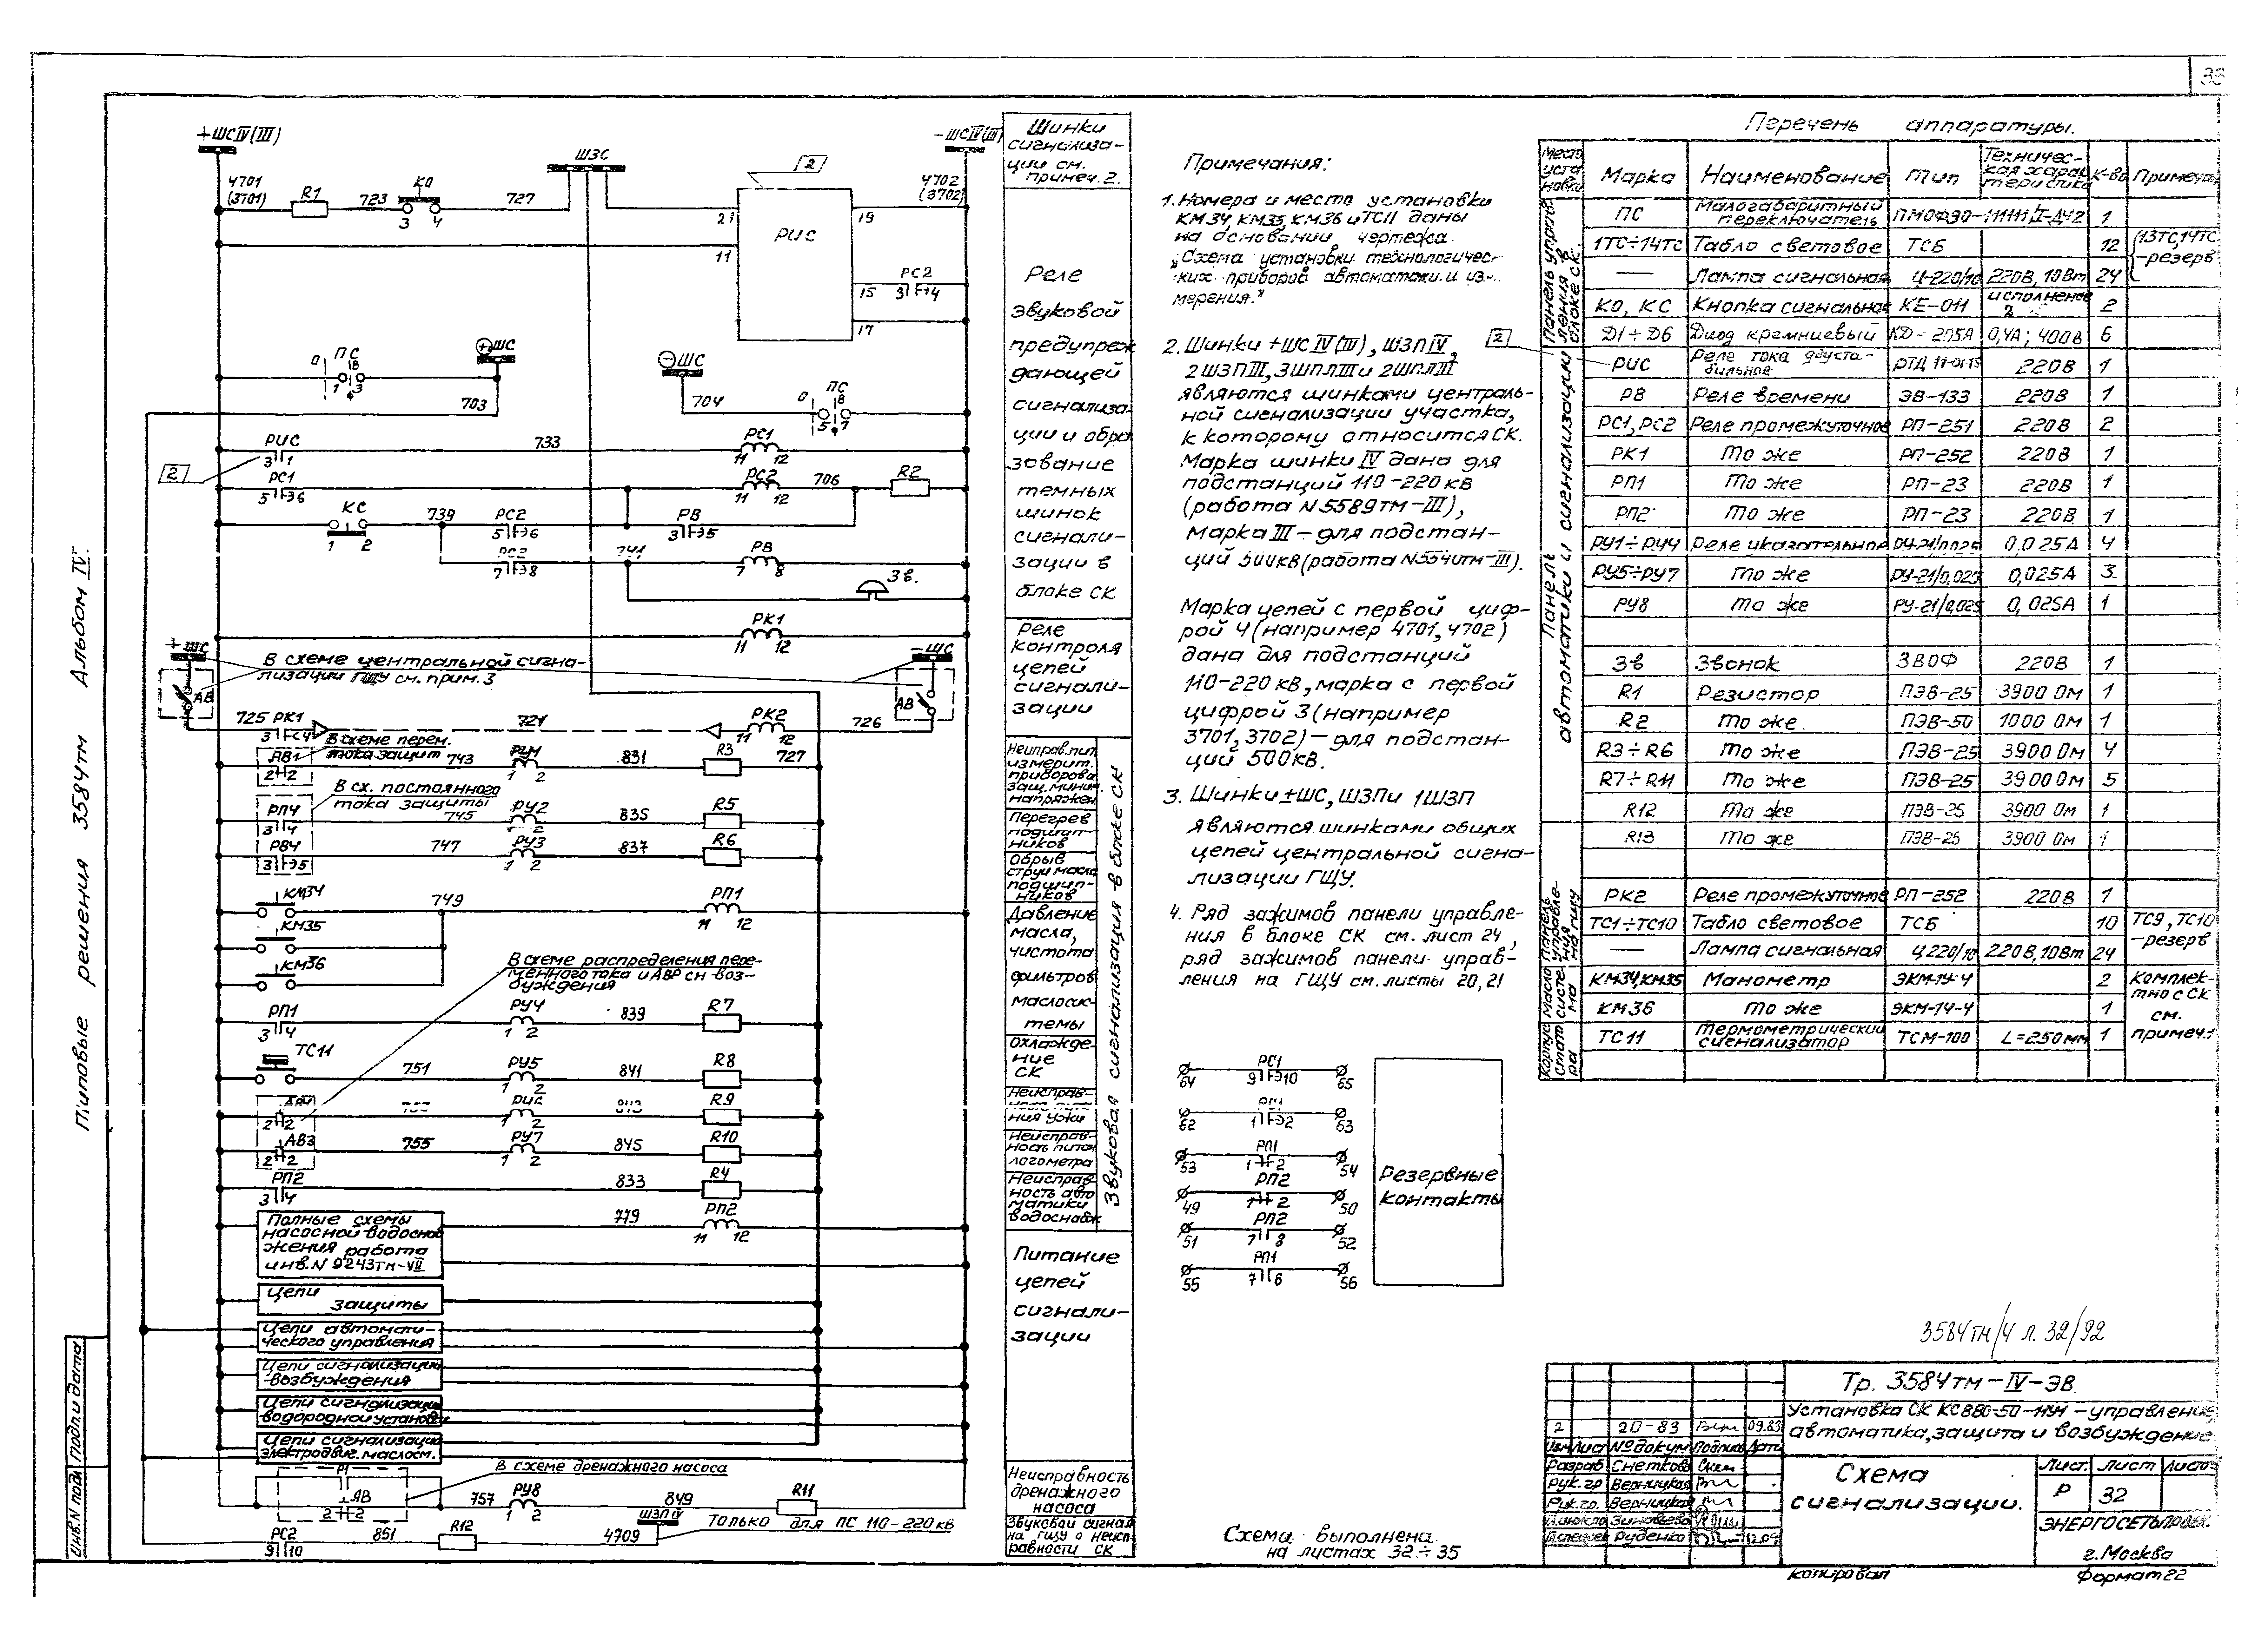 33
Типовые решения 3584тм Альбом IV.
Инв.N подл
Подп.и дата
+ШС IV(III)
ШЗС
2
-ШС IV(III)
4701
(3701)
R1
723
КО
3 4
727
21
РИС
19
4702
(3702)
11
15
РС2
3 4
17
0
ПС
В
1 3
+ШС
703
-ШС
704
0
ПС
В
5 7
РИС
3 1
733
РС1
11 12
2
РС1
5 6
РС2
11 12
706
R2
КС
1 2
739
РС2
5 6
РВ
3 5
РС2
7 8
741
РВ
7 8
Зв.
РК1
11 12
+ШС
В схеме центральной сигна-
лизации ГЩУ см. прим. 3
-ШС
АВ
АВ
725
РК1
3 4
721
РК2
11 12
726
В схеме перем.
тока защит
АВ1
2 2
743
РУ1
1 2
831
R3
727
В сх. постоянного
тока защиты
РП4
3 4
745
РУ2
1 2
835
R5
РВ4
3 5
747
РУ3
1 2
837
R6
КМ34
749
РП1
11 12
КМ35
КМ36
В схеме распределения пере-
менного тока и АВР сн воз-
буждения
РП1
3 4
РУ4
1 2
839
R7
ТС11
751
РУ5
1 2
841
R8
2 2
РУ6
1 2
843
R9
АВ3
2 2
755
РУ7
1 2
845
R10
РП2
3 4
833
R4
Полные схемы
насосной водоснаб
жения работа
инв.N 9243тм-VII
779
РП2
11 12
Цепи
защиты
Цепи автомати-
ческого управления
Цепи сигнализации
возбуждения
Цепи сигнализации
водородной установки
Цепи сигнализации
электродвиг. маслосм.
Р1
В схеме дренажного насоса
АВ
2 2
757
РУ8
1 2
849
R11
ШЗП IV
РС2
9 10
851
R12
4709
Только для ПС 110-220 кв
Шинки
сигнализа-
ции см.
примеч. 2.
Реле
звуковой
предупреж
дающей
сигнализа
ции и обра
зование
темных
шинок
сигнали-
зации в
блоке СК
Реле
контроля
цепей
сигнали-
зации
Неиправ.пит.
измерит.
приборов
Защ.миним.
напряжен
Перегрев
подшип-
ников
Обрыв
струи масла
подшип-
ников
Давление
масла,
чистота
фильтров
маслосис-
темы
Охлажде-
ние
СК
Неисправ-
Неисправ-
ность питан
логометра
Неисправ
ность авто
матики
водоснабж
Звуковая сигнализация в блоке СК
Питание
цепей
сигнали-
зации
Неисправность
дренажного
насоса
Звуковой сигнал
на ГЩУ о неисп-
равности СК
Примечания:
1. Номера и место установки
КМ34, КМ35, КМ36 и ТС11 даны
на основании чертежа
„Схема установки технологичес-
ких приборов автоматики и из-
мерения."
2. Шинки +ШС IV(III), ШЗП IV,
2ШЗП III, 3ШПЛ III и 2ШПЛ III
являются шинками централь-
ной сигнализации участка,
к которому относится СК.
Марка шинки IV дана для
подстанций 110-220 кв
(работа N5589тм-III),
марка III - для подстан-
ций 500кв (работа N5540тм-III).
Марка цепей с первой циф-
рой 4 (например 4701, 4702)
дана для подстанций
110-220 кв, марка с первой
цифрой 3 (например
3701, 3702) - для подстан-
ций 500кв.
3. Шинки ±ШС, ШЗП и 1ШЗП
являются шинками общих
цепей центральной сигна-
лизации ГЩУ.
4. Ряд зажимов панели управле-
ния в блоке СК см. лист 24,
ряд зажимов панели управ-
ления на ГЩУ см. листы 20, 21
64
РС1
9 10
65
62
РС1
1 2
63
53
РП1
1 2
54
49
РП2
1 2
50
51
РП2
7 8
52
55
РП1
7 8
56
Резервные
контакты
Схема выполнена
на листах 32÷35
Перечень аппаратуры.
Место уста новки Марка Наименование Тип Техничес- кая харак теристика К-во Примечан
Панель управ- ления в блоке СК.
ПС Малогабаритный переключатель ПМОФ90-111111/II-Д42 1
1ТС÷14ТС Табло световое ТСБ 12 (13ТС,14ТС -резерв
— Лампа сигнальная Ц-220/10 220В, 10Вт 24
КО, КС Кнопка сигнальная КЕ-011 исполнение 2 2
Д1÷Д6 Диод кремниевый КД-205А 0,4А; 400В 6
2
Панель автоматики и сигнализации
РИС Реле тока двуста- бильное РТД 11-01-15 220В 1
РВ Реле времени ЭВ-133 220В 1
РС1, РС2 Реле промежуточное РП-251 220В 2
РК1 То же РП-252 220В 1
РП1 То же РП-23 220В 1
РП2 То же РП-23 220В 1
РУ1÷РУ4 Реле указательное РУ-21/0,025 0,025А 4
РУ5÷РУ7 То же РУ-21/0,025 0,025А 3
РУ8 То же РУ-21/0,025 0,025А 1
Зв Звонок ЗВОФ 220В 1
R1 Резистор ПЭВ-25 3900 Ом 1
R2 То же ПЭВ-50 1000 Ом 1
R3÷R6 То же ПЭВ-25 3900 Ом 4
R7÷R11 То же ПЭВ-25 3900 Ом 5
R12 То же ПЭВ-25 3900 Ом 1
R13 То же ПЭВ-25 3900 Ом 1
Панель управле- ния на ГЩУ
РК2 Реле промежуточное РП-252 220В 1
ТС1÷ТС10 Табло световое ТСБ 10 ТС9, ТС10 -резерв
— Лампа сигнальная Ц220/10 220В, 10Вт 24
Масло систе- ма
КМ34,КМ35 Манометр ЭКМ-14-4 2 Комплек- тно с СК см. примеч.1
КМ36 То же ЭКМ-14-4 1
Корпус стато ра
ТС11 Термометрический сигнализатор ТСМ-100 L=250мм 1
3584тм/4 л. 32/92
Тр. 3584тм-IV-ЭВ.
Установка СК КСВ80-50-11У1-управление,
автоматика, защита и возбуждение
2 20-83 09.83
Изм Лист №докум Подпись Дата
Разраб Снеткова
Рук.гр Верницкая
Рук.гр. Верницкая
Зиновьева
Руденко
Схема
сигнализации.
Лист. Лист Листов
Р 32
ЭНЕРГОСЕТЬПРОЕКТ
г. Москва
Копировал
Формат 22